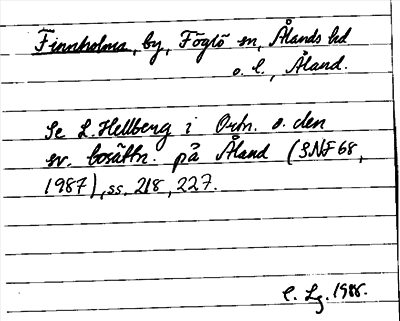 Finnholma, by, Föglö sn, Ålands hd
o. l., Åland.
Se L. Hellberg i Ortn. o. den
sv. bosättn. på Åland (SNF 68,
1987), ss. 218, 227.
C. Lg. 1988.